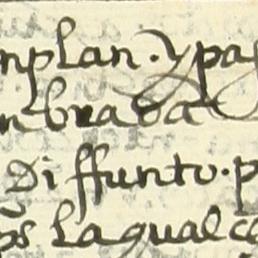 nplan. y pa
nbrada
Diffunto. p
ps la qual cō